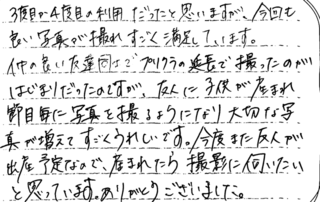 3度目か4度目の利用だったと思いますが、今回も
良い写真が撮れすごく満足しています。
仲の良い友達同士でプリクラの延長で撮ったのが
はじまりだったのですが、友人に子供が産まれ
節目毎に写真を撮るようになり大切な写
真が増えてすごくうれしいです。今度また友人が
出産予定なので、産まれたら撮影に伺いたい
と思っています。ありがとうございました。